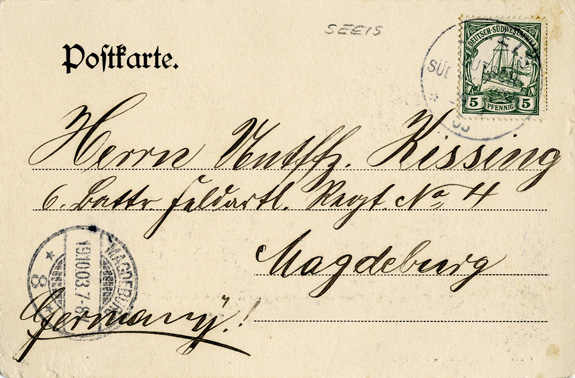 SEEIS
Postkarte.
DEUTSCH-SÜDWESTAFRIKA
5 PFENNIG 5
SÜD
Herrn Utffz. Kissing
6. Battr. Feldartl. Regt. No 4
Magdeburg
Germany!
MAGDEBURG
19.10.03.7-8
8